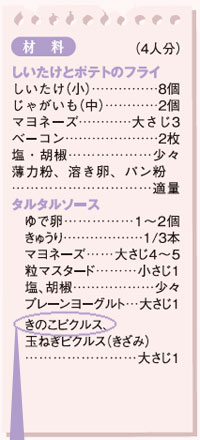 材料 (4人分)
しいたけとポテトのフライ
しいたけ(小)……………8個
じゃがいも(中)…………2個
マヨネーズ…………大さじ3
ベーコン…………………2枚
塩・胡椒…………………少々
薄力粉、溶き卵、パン粉
……………………………適量
タルタルソース
ゆで卵……………1〜2個
きゅうり……………1/3本
マヨネーズ……大さじ4〜5
粒マスタード………小さじ1
塩、胡椒………………少々
プレーンヨーグルト…大さじ1
きのこピクルス、
玉ねぎピクルス(きざみ)
……………………大さじ1